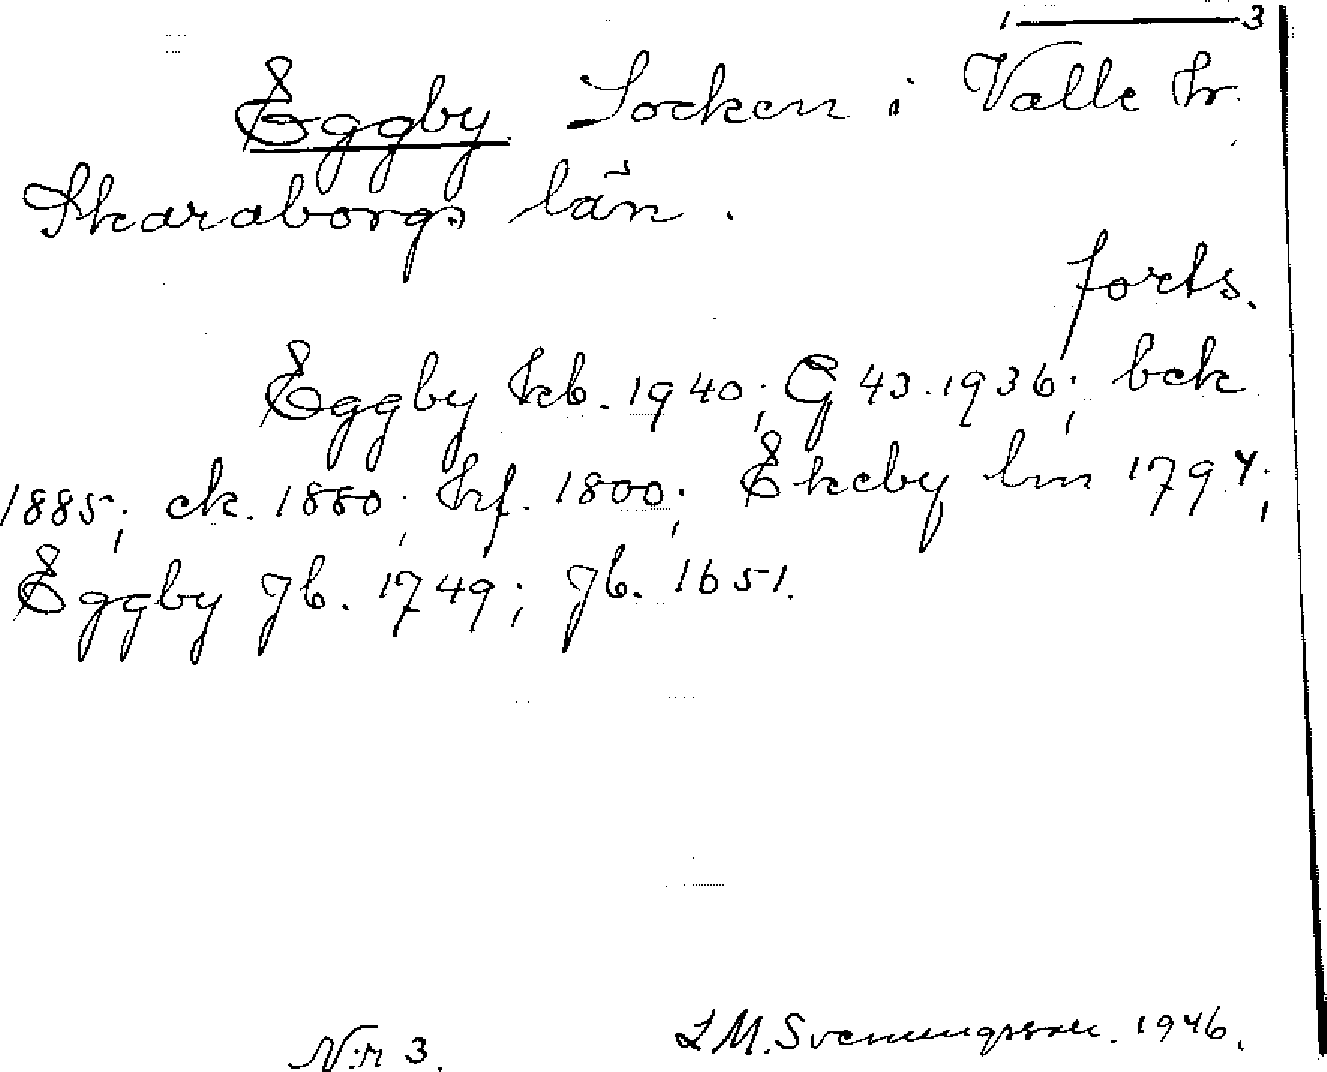 1 — 3
Eggby Socken i Valle hr.
Skaraborgs län.
forts.
Eggby kb. 1940; G 43. 1936; bek
1885; ck. 1880; hf. 1800; Ekeby lm 1794;
Eggby Jb. 1749; Jb. 1651.
N:r 3. L M. Svenungsson. 1946.